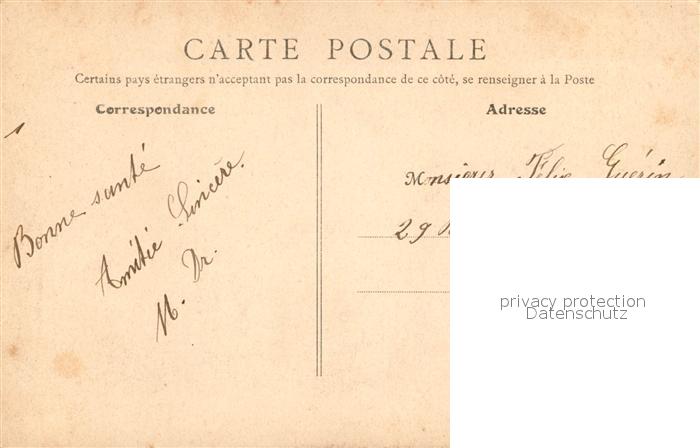 CARTE POSTALE
Certains pays étrangers n'acceptant pas la correspondance de ce côté, se renseigner à la Poste
Correspondance
Bonne santé
Amitié Sincère.
N. Dr.
Adresse
Monsieur Félix Guérin
29
privacy protection
Datenschutz